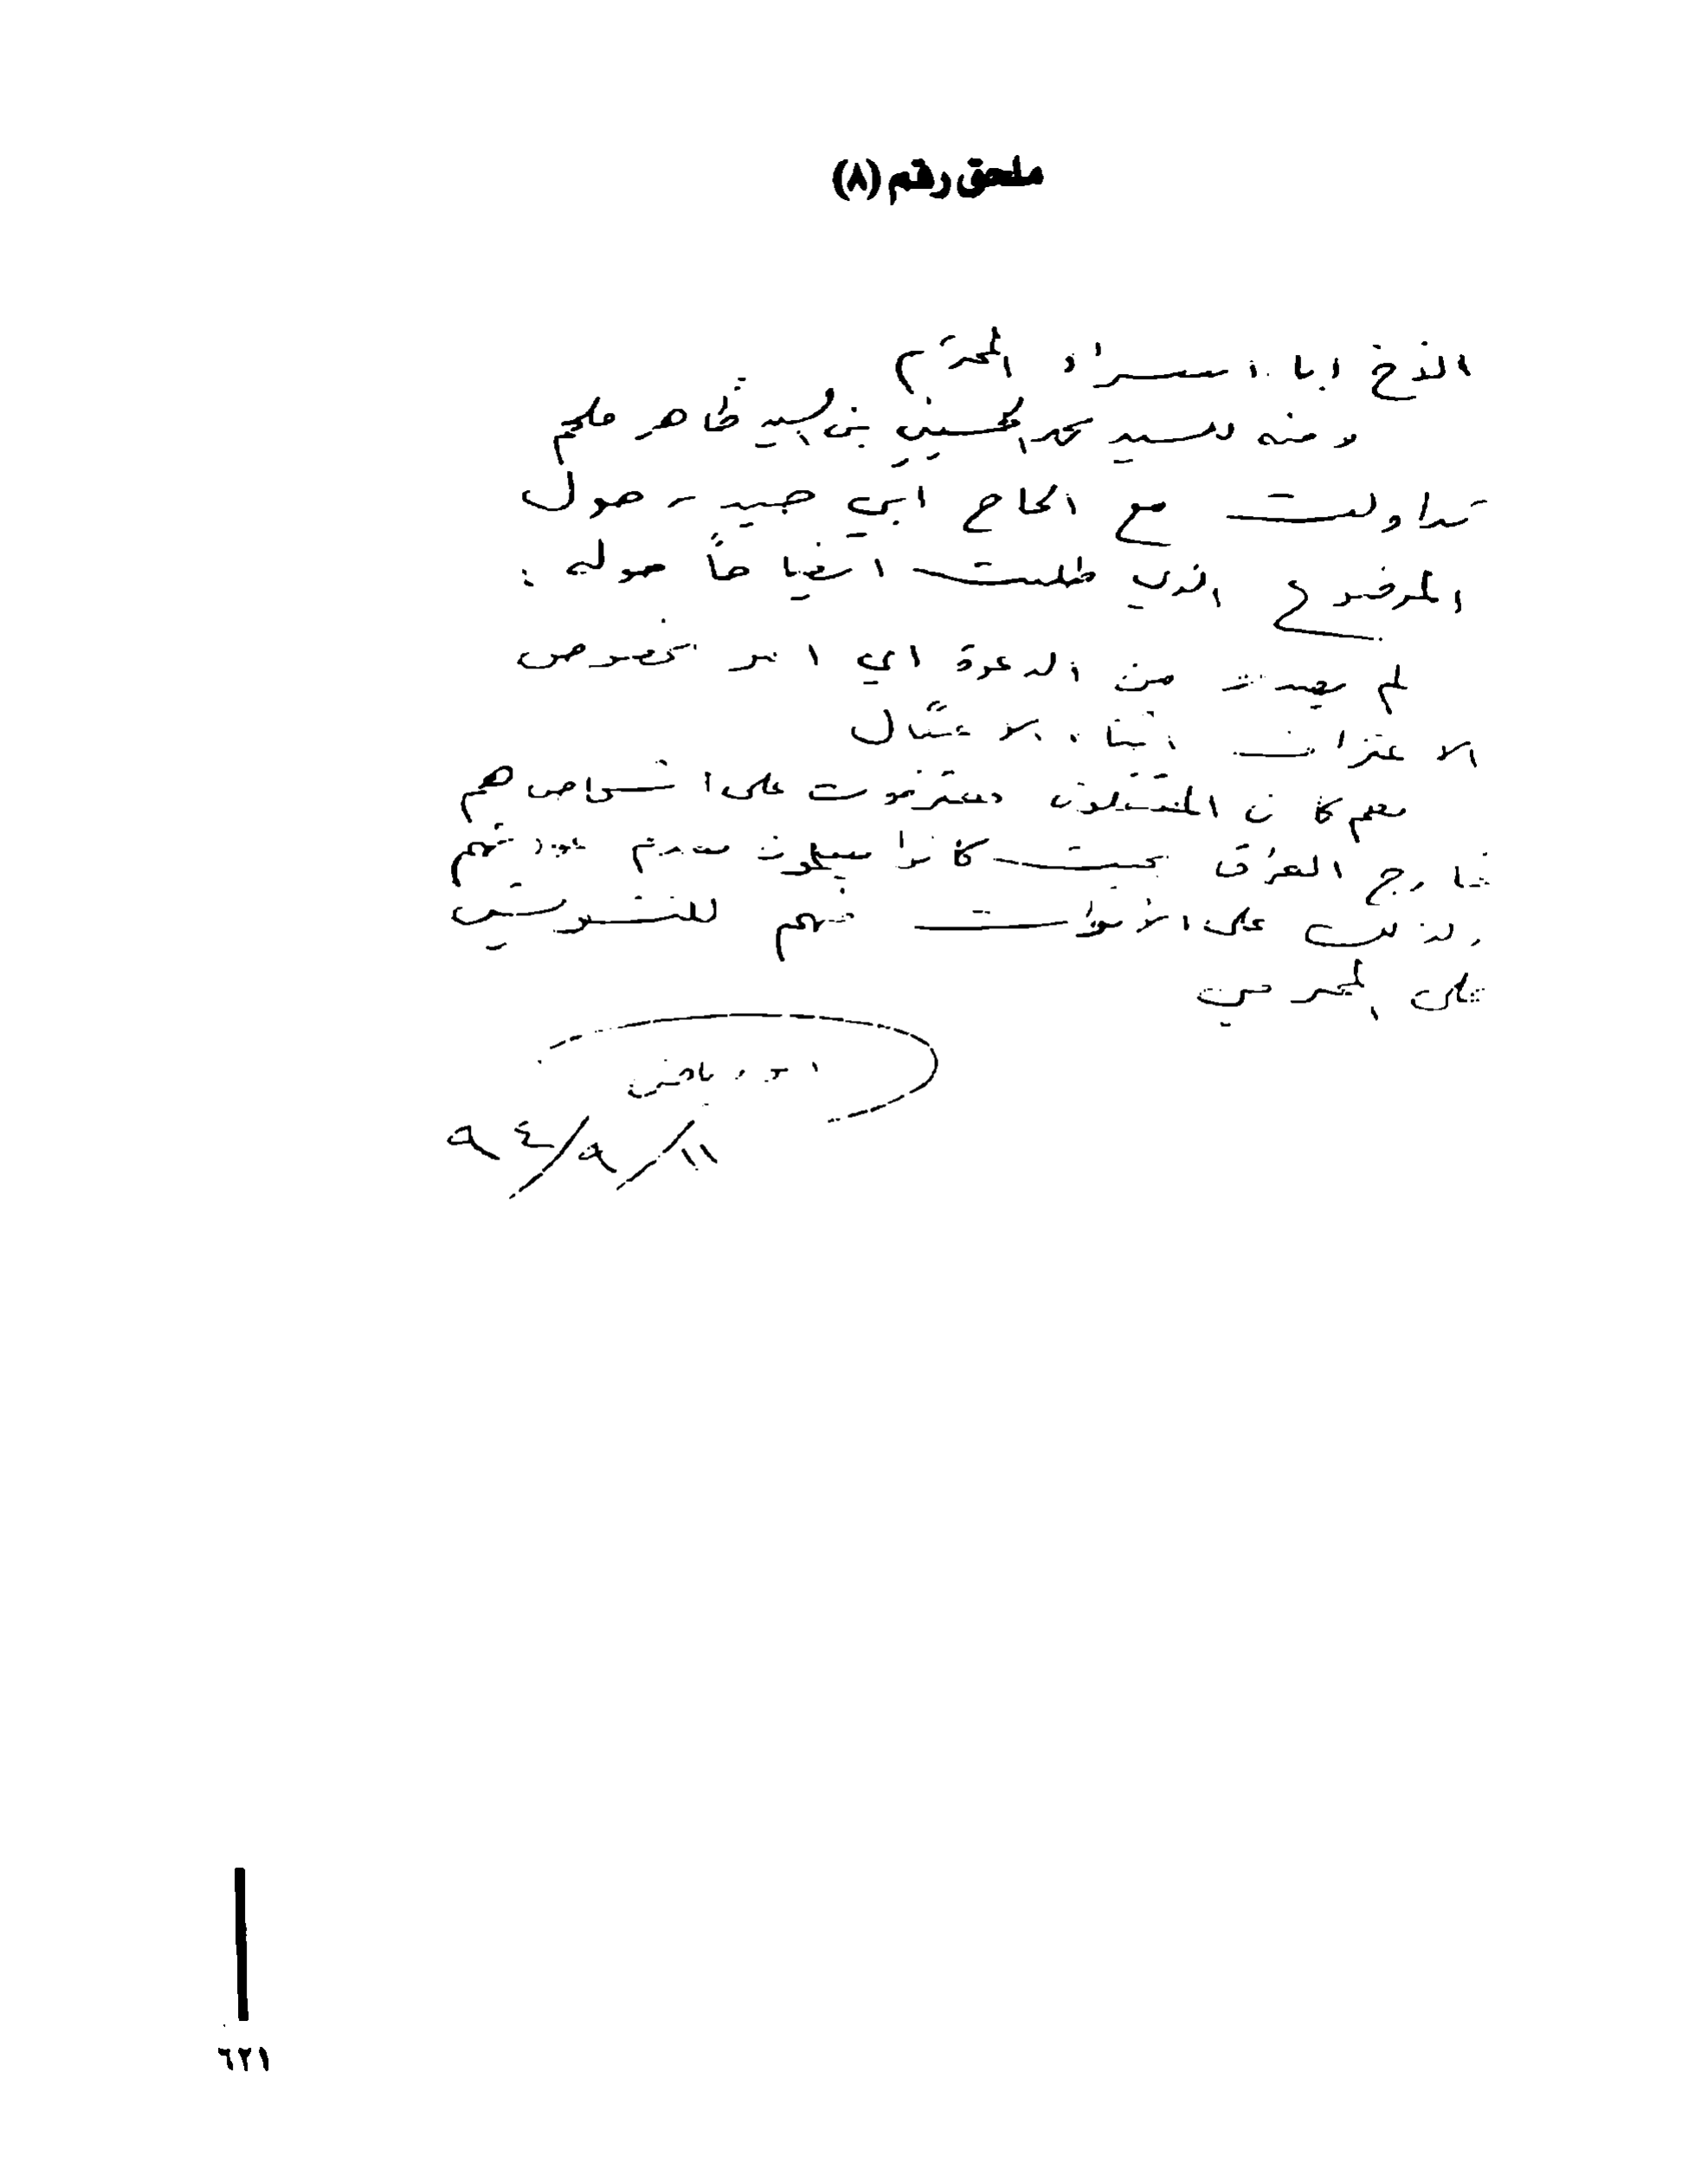 ملحق رقم (٨)
الأخ ابا اسراء المحترم
ومنه للسيد محمد الحسيني بن السيد طاهر ملحم
تداولت مع الحاج ابي حيدر حول
الموضوع الذي طلبت ايضاحاً حوله :
لم يصدر من الدعوة اي امر بخصوص
الاعترافات اثناء الاعتقال
نعم كان المعتقلون يعترفون على اشخاص هم
خارج العراق بحيث كانوا عدم عودتهم
وكذلك على الأموات منهم للتشويش
على المجرمين
ابو رياض
١١/٩/٩٤
٦٢١